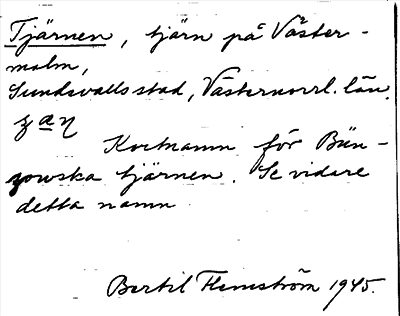 Tjärnen, tjärn på Väster-
malm,
Sundsvalls stad, Västernorrl. län.
Kortnamn för Bün-
zowska tjärnen. Se vidare
detta namn
Bertil Flemström 1945.